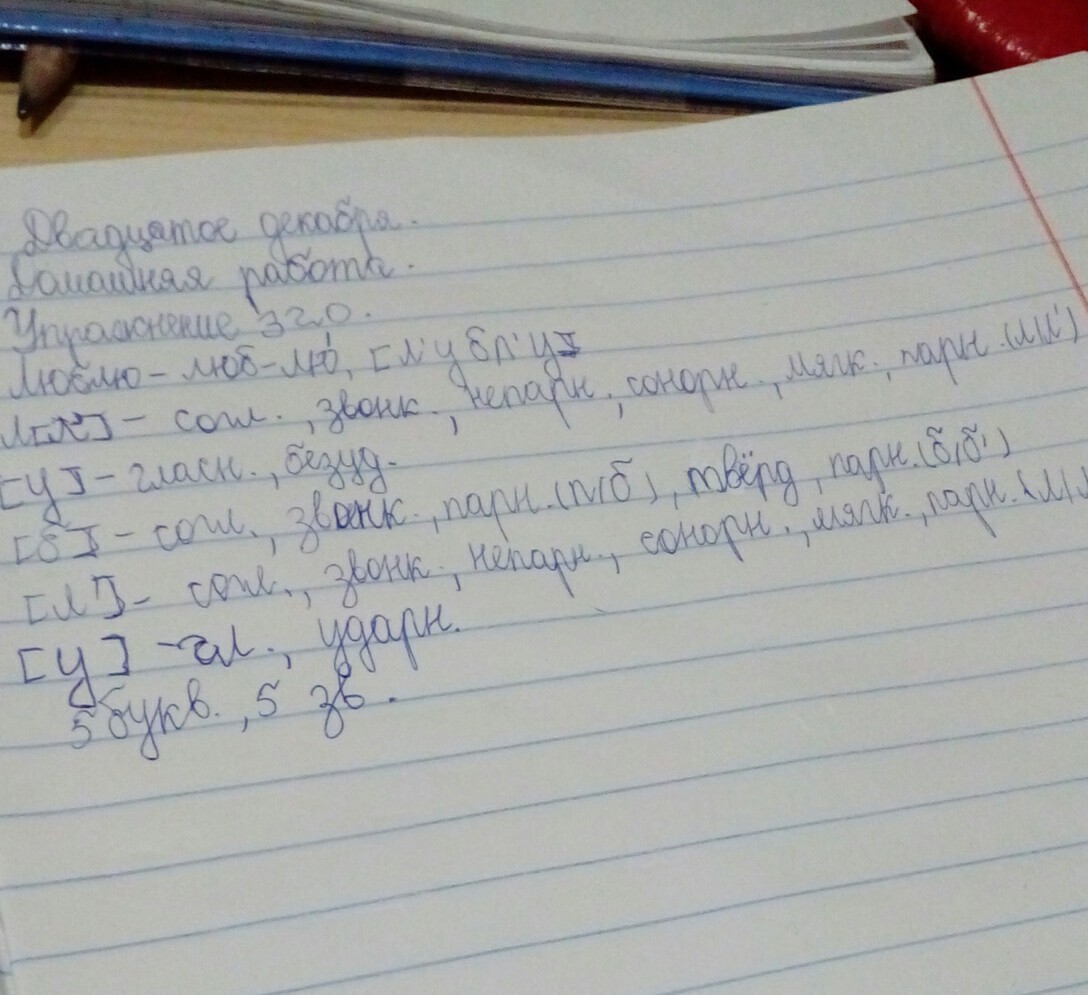 Двадцатое декабря.
Домашняя работа.
Упражнение 320.
Люблю - люб-лю́, [л'убл'у]
л[л'] - согл., звонк., непарн., сонорн., мягк., парн. (л/л')
[у] - гласн., безуд.
[б] - согл., звонк., парн. (п/б), твёрд, парн. (б/б')
[л'] - согл., звонк., непарн., сонорн., мягк., парн. (л/
[у] - гл., ударн.
5 букв., 5 зв.